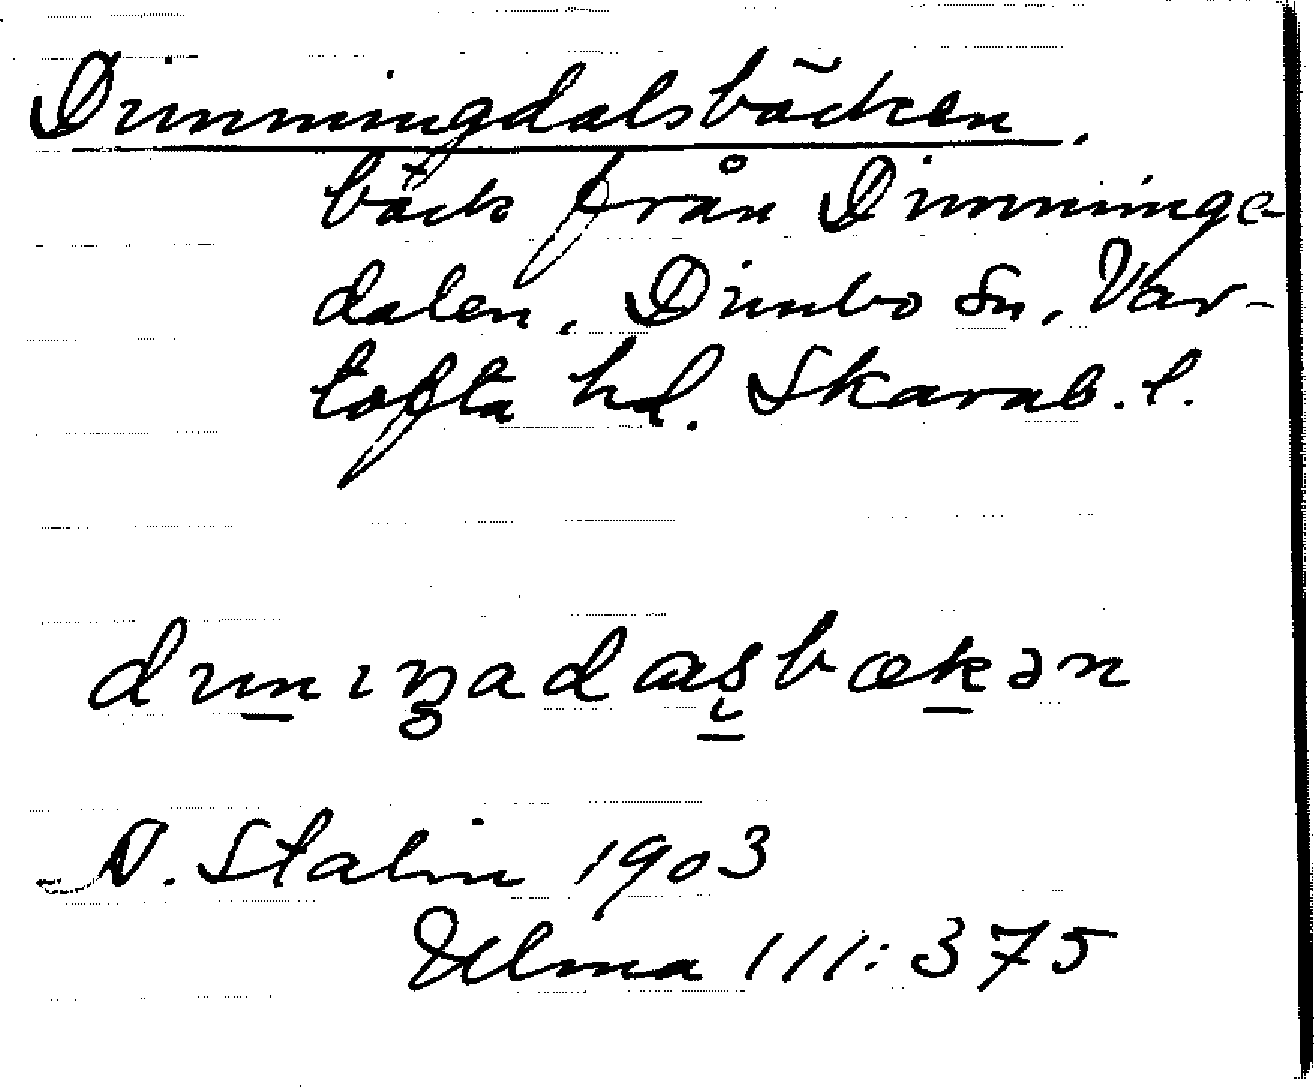 Dimmingdalsbäcken.
bäck från Dimminga
dalen, Dimbo sn, Var-
tofta hd. Skarab. l.
dımıŋadaʂbækən
Stalin 1903
Ulma 111:375